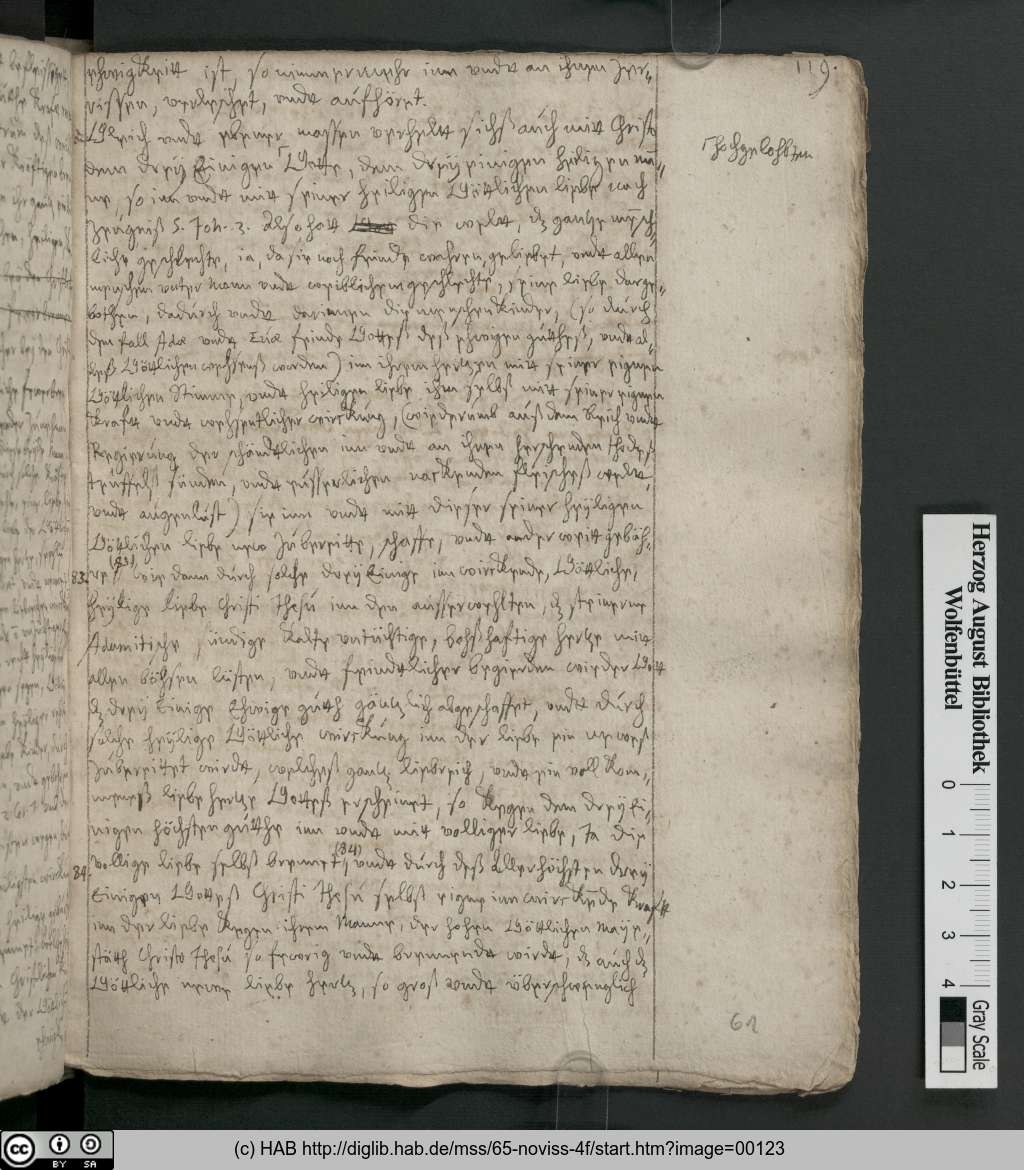 119.
ehwigKeitt ist, so nimmermehr inn vndt an ihnen Zer-
rissen, verleschet, vndt aufhöret.
Gleich vndt ebener massen verhelt sichs auch mitt Christo
dem dreÿ Einigen Gotte, dem dreÿ einigen heiligen
hochgelobten
me, so inn vndt mitt seiner heiligen Göttlichen liebe nach
Zeugniß S. Joh. 3. Also hatt die welt, dz gantze mensch-
liche geschlechte, ia, da sie noch feinde wahren, geliebet, vndt allen
menschen vnter Mann vndt weiblichem geschlechte, seine liebe darge-
bothen, dadurch vndt darinnen die menschenKinder, (so durch
den fall Adæ vndt Evæ feinde Gottes deß ehwigen guthes, vndt al-
les Göttlichen wesens worden) inn ihrem hertzen mitt seiner eigenen
Göttlichen Stimme, vndt heiligen liebe ihm selbst mitt seiner eigenen
Krafft vndt wesentlicher wirckung, (wiederumb auß dem Reich vndt
Regierung der schändtlichen inn vndt an ihnen herschenden thodes
teuffels sünden, vndt eüsserlichen
vndt augenlust) sie inn vndt mitt dieser seiner heÿligen
Göttlichen liebe new Zubereitte, schaffe, vndt anderweitt gebäh-
83. re, (83) wie dann durch solche dreÿ Einige inn wirckende, Göttliche,
heÿlige liebe Christi Jhesu inn den ausserwehlten, dz steinerne
Adamitische, sündige Kalte vntüchtige, boßhafftige hertze mitt
allen bößen lüsten, vndt feindtlicher begierden wieder Gott
dz dreÿ Einige Ehwige guth gäntzlich abgeschaffet, vndt durch
solche heÿlige Göttliche wirckung inn der liebe ein newes
Zubereittet wirdt, welches gantz liebreich, vndt ein voll Kom-
menes liebe hertze Gottes erscheinet, so Kegen dem dreÿ Ei-
nigen höchsten guthe inn vndt mitt volliger liebe, Ja die
84. vollige liebe selbst brennet, (84) vndt durch deß Allerhöchsten dreÿ
Einigen Gottes Christi Jhesu selbst eigene inn wirckende Krafft
inn der liebe Kegen ihrem Manne, der hohen Göttlichen Maÿe-
stäth Christo Jhesu so fewrig vndt brennendt wirdt, dz auch dz
Göttliche newe liebe hertz, so groß vndt überschwenglich
62
Herzog August Bibliothek
Wolfenbüttel
0 1 2 3 4
Gray Scale
(c) HAB http://diglib.hab.de/mss/65-noviss-4f/start.htm?image=00123